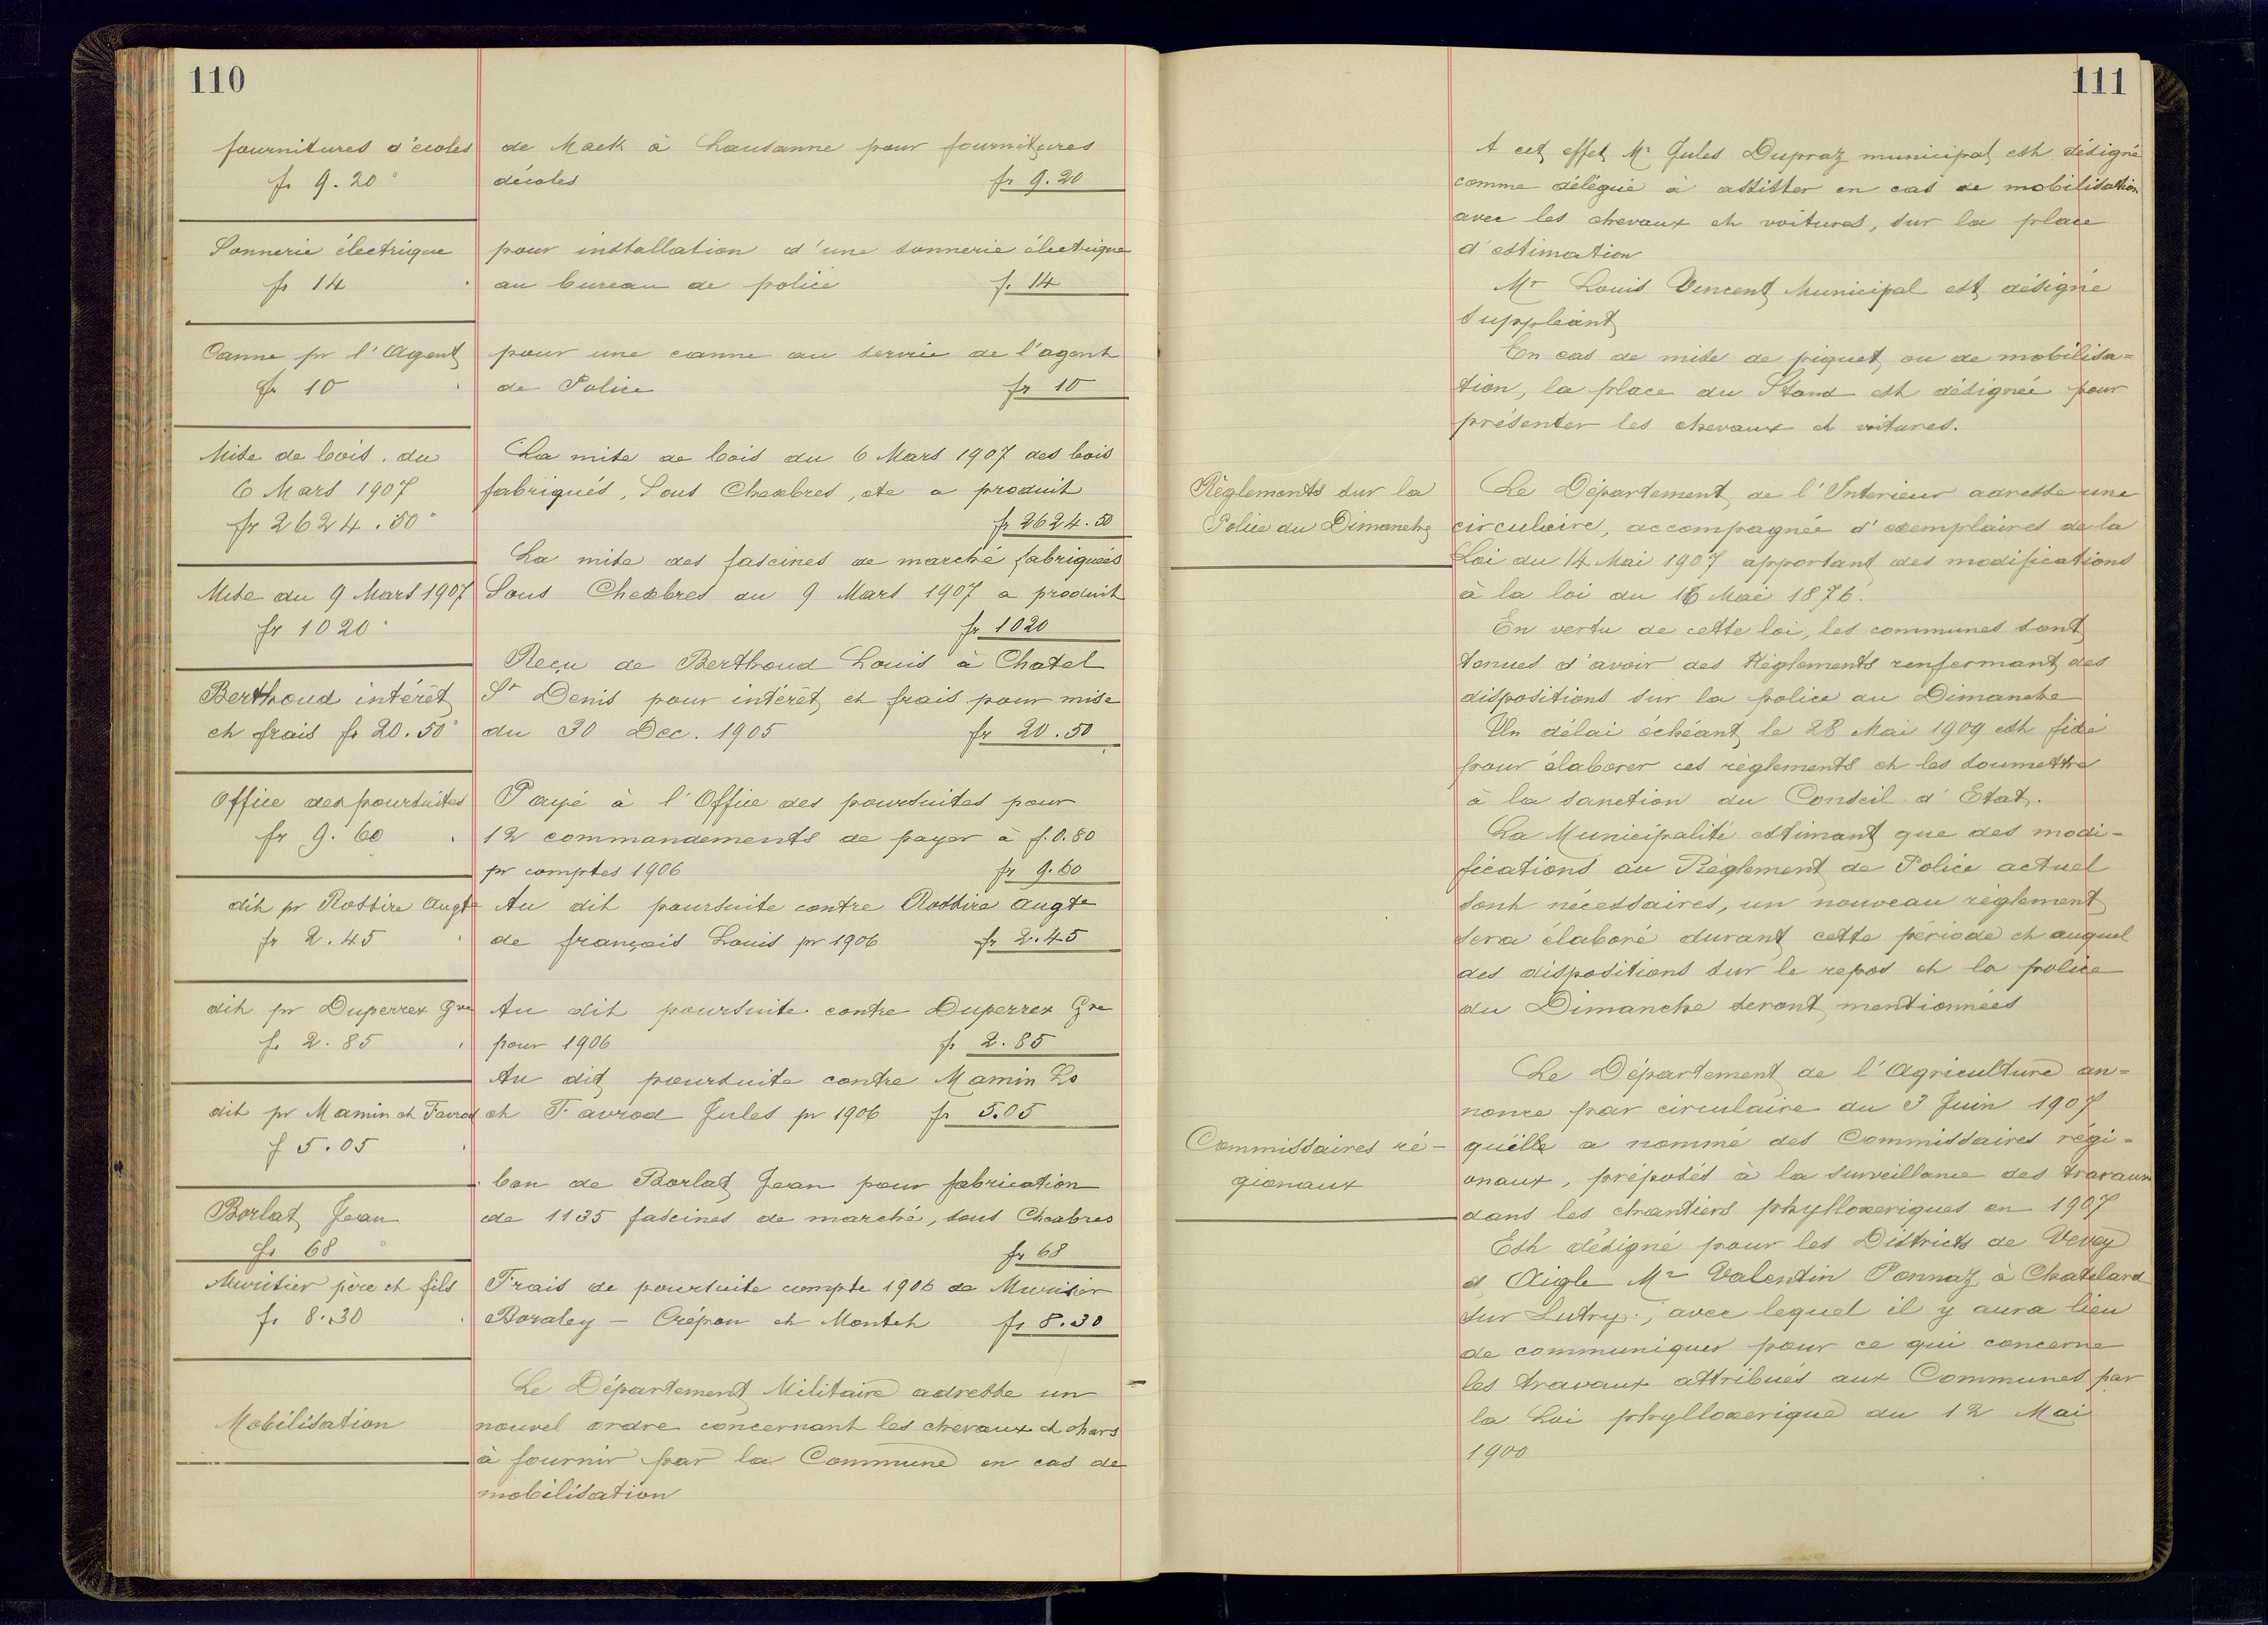 110
fournitures d'écoles
fr 9.20
de Mack à Lausanne pour fournitures
décoles fr 9.20
Sonnerie électrique
fr 14
pour installation d'une sonnerie électrique
au bureau de police f. 14
Canne pr l'Agent
fr 10
pour une canne au service de l'agent
de Police fr 10
Mise de bois. du
6 Mars 1907
fr 2624.50
La mise de bois du 6 Mars 1907 des bois
fabriqués, Sous Chexbres, etc a produit
fr 2624.50
Mise du 9 Mars 1907
fr 1020
La mise des fascines de marché fabriquées
Sous Chexbres du 9 Mars 1907 a produit
fr 1020
Berthoud intérêt
et frais fr 20.50
Reçu de Berthoud Louis à Chatel
St Denis pour intérêt et frais pour mise
du 30 Dec. 1905 fr 20.50
Office des poursuites
fr 9.60
Payé à l'Office des poursuites pour
12 commandements de payer à f. 0.80
pr comptes 1906 fr 9.60
dit pr Rossire Augte
fr 2.45
Au dit poursuite contre Rossire Augte
de françois Louis pr 1906 fr 2.45
dit pr Duperrex Gve
f. 2.85
Au dit poursuite contre Duperrex Gve
pour 1906 fr 2.85
dit pr Mamin et Favrod
f 5.05
Au dit poursuite contre Mamin Ls
et Favrod Jules pr 1906 fr 5.05
Borlat Jean
fr 68
bon de Borlat Jean pour fabrication
de 1135 fascines de marché, sous Chexbres
fr 68
Murisier père et fils
fr 8.30
Frais de poursuite compte 1906 de Murisier
Boraley – Crépon et Monteh fr 8.30
Mobilisation
Le Département Militaire adresse un
nouvel ordre concernant les chevaux et chars
à fournir par la Commune en cas de
mobilisation
111
A cet effet Mr Jules Dupraz municipal est désigné
comme délégué à assister en cas de mobilisation
avec les chevaux et voitures, sur la place
d'estimation
Mr Louis Vincent Municipal est désigné
suppléant
En cas de mise de piquet ou de mobilisa=
tion, la place du Stand est désignée pour
présenter les chevaux et voitures.
Règlements sur la
Police du Dimanche
Le Département de l'Interieur adresse une
circulaire, accompagnée d'exemplaires de la
Loi du 14 Mai 1907 apportant des modifications
à la loi du 16 Mai 1876.
En vertu de cette loi, les communes sont
tenues d'avoir des Règlements renfermant des
dispositions sur la police du Dimanche
Un délai échéant le 28 Mai 1909 est fixé
pour élaborer ces règlements et les soumettre
à la sanction du Conseil d'Etat.
La Municipalité estimant que des modi-
fications au Règlement de Police actuel
sont nécessaires, un nouveau règlement
sera élaboré durant cette période et auquel
des dispositions sur le repos et la police
du Dimanche seront mentionnées
Commissaires ré-
gionaux
Le Département de l'Agriculture an=
nonce par circulaire du 3 Juin 1907
qu'elle a nommé des Commissaires régi=
onaux, préposés à la surveillance des travaux
dans les chantiers phylloxeriques en 1907
Est désigné pour les Districts de Vevey
d'Aigle Mr Valentin Ponnaz à Chatelard
sur Lutry; avec lequel il y aura lieu
de communiquer pour ce qui concerne
les travaux attribués aux Communes par
la Loi phylloxerique du 12 Mai
1900